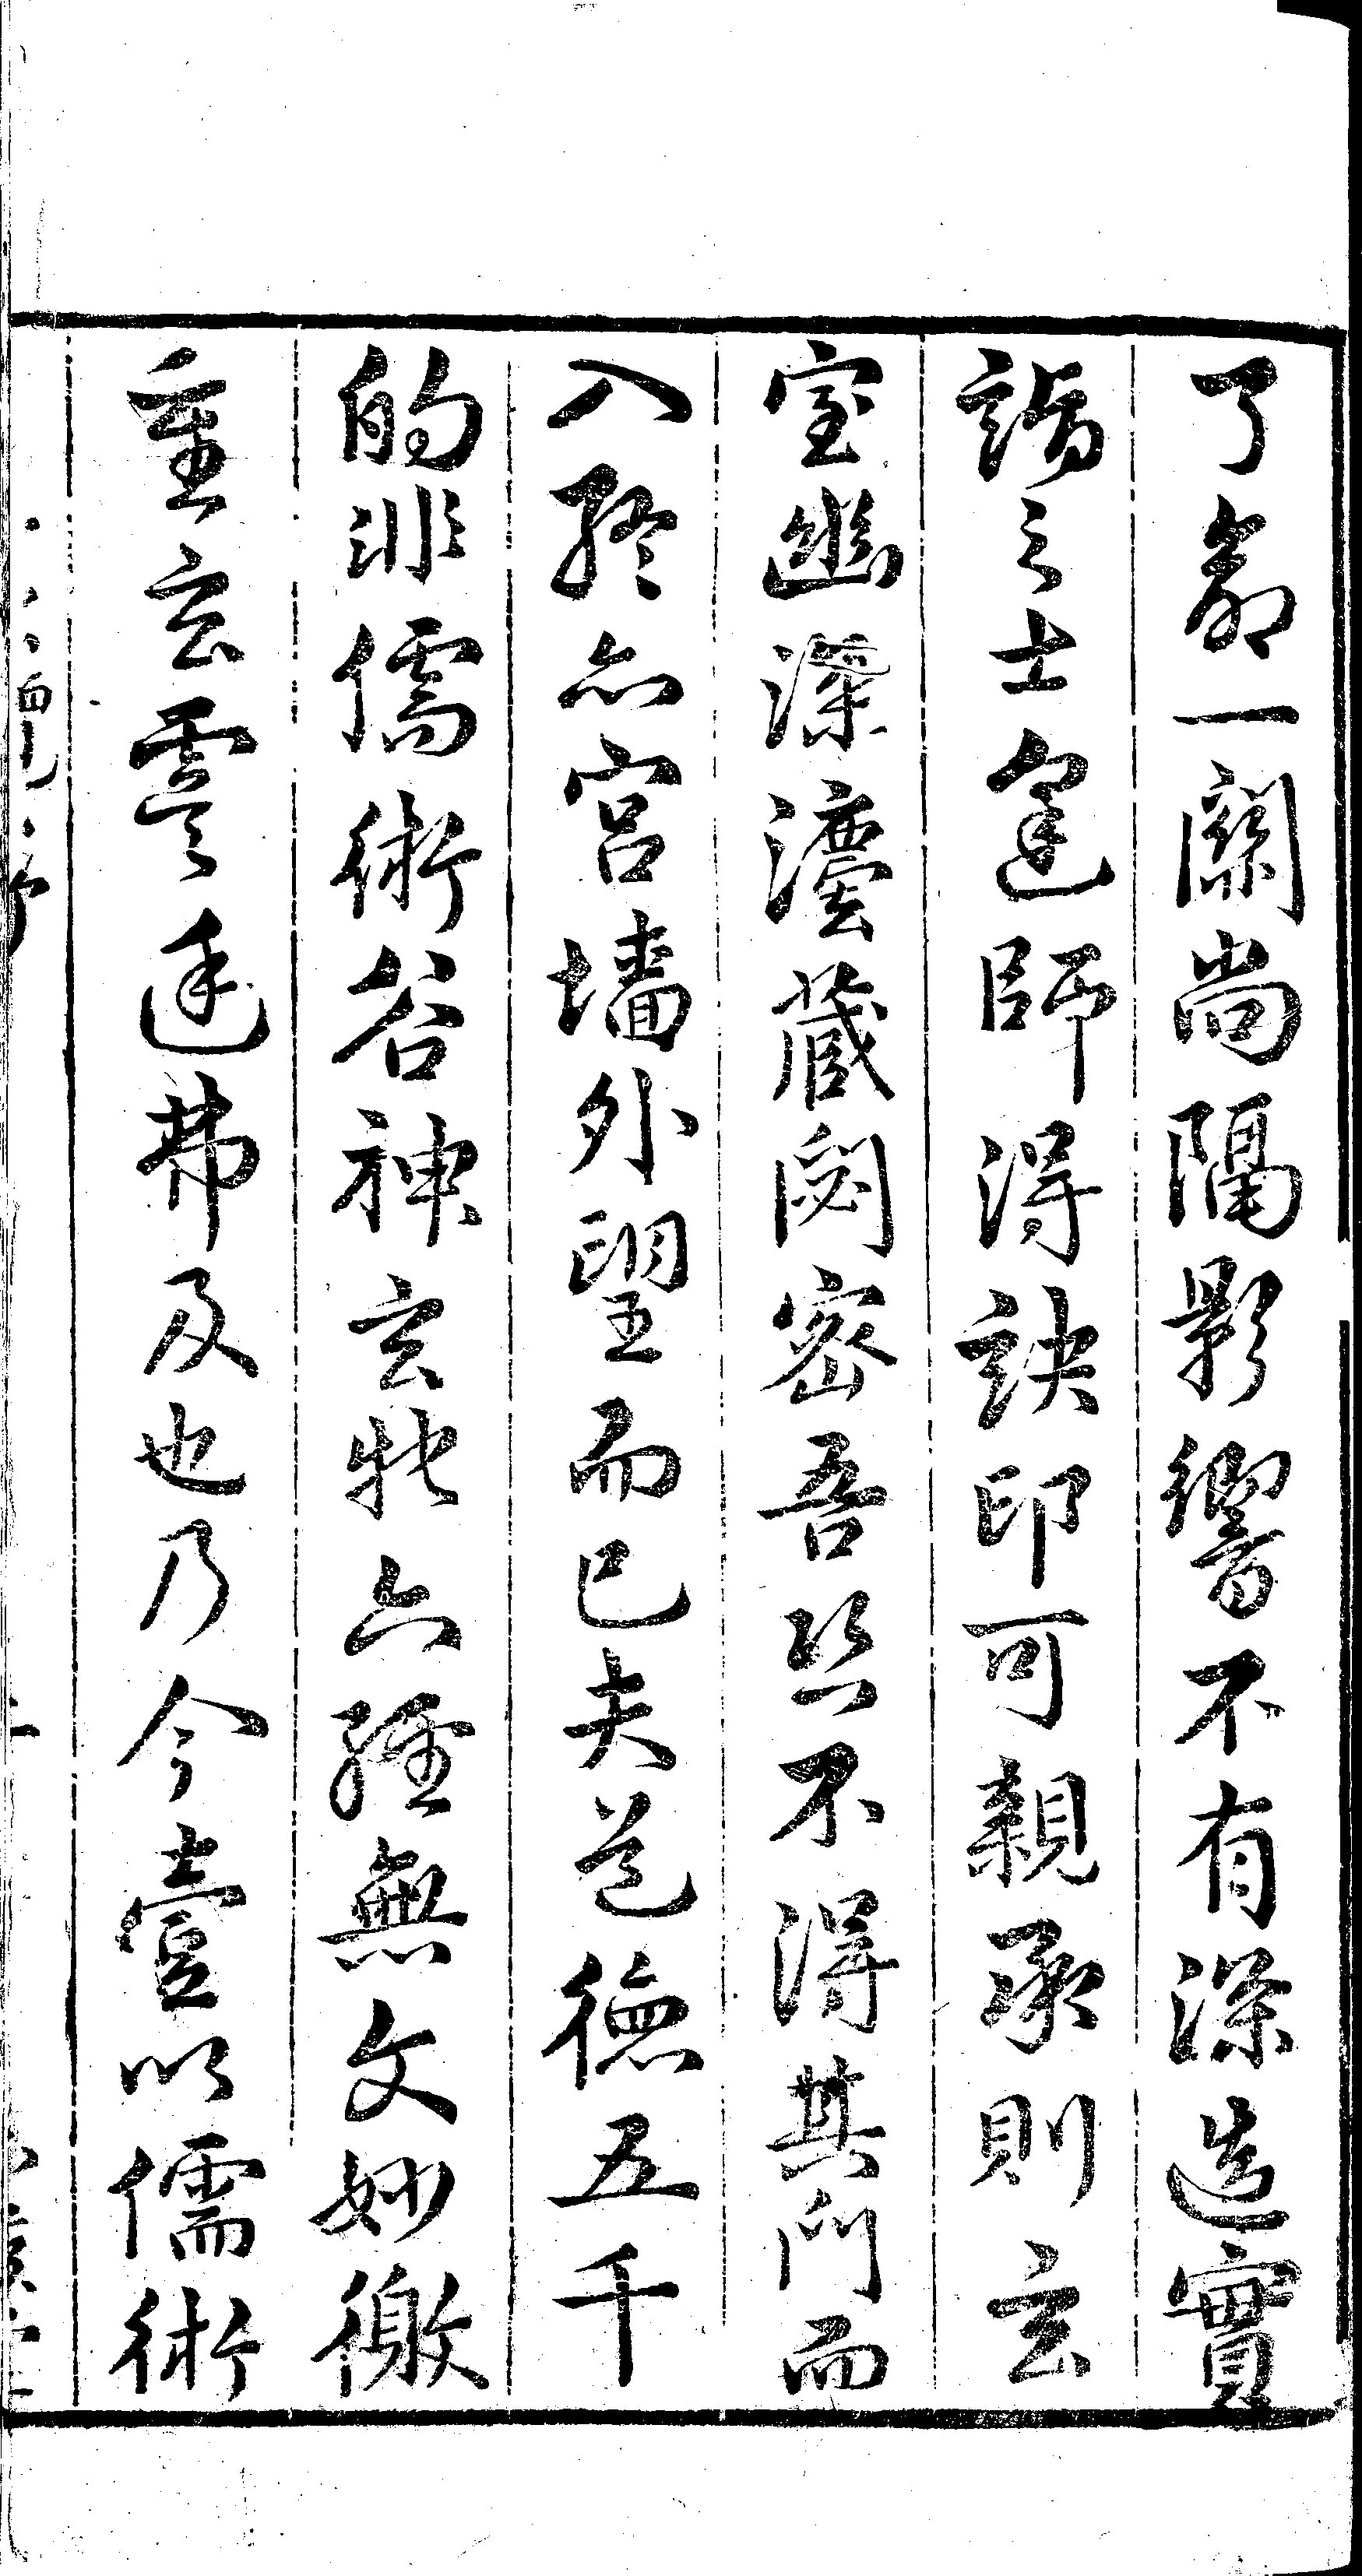 了命一關尚隔影響不有深造實
詣之士逢師得訣印可親承則玄
室幽深灋藏閟密吾恐不得其門而
入終亦宮墻外望而已夫道德五千
的非儒術谷神玄牝六經無文妙徼
重玄弗及也乃今壹以儒術